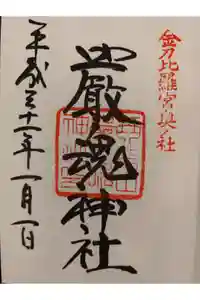 金刀比羅宮奥社
嚴魂神社
平成三十一年一月一日